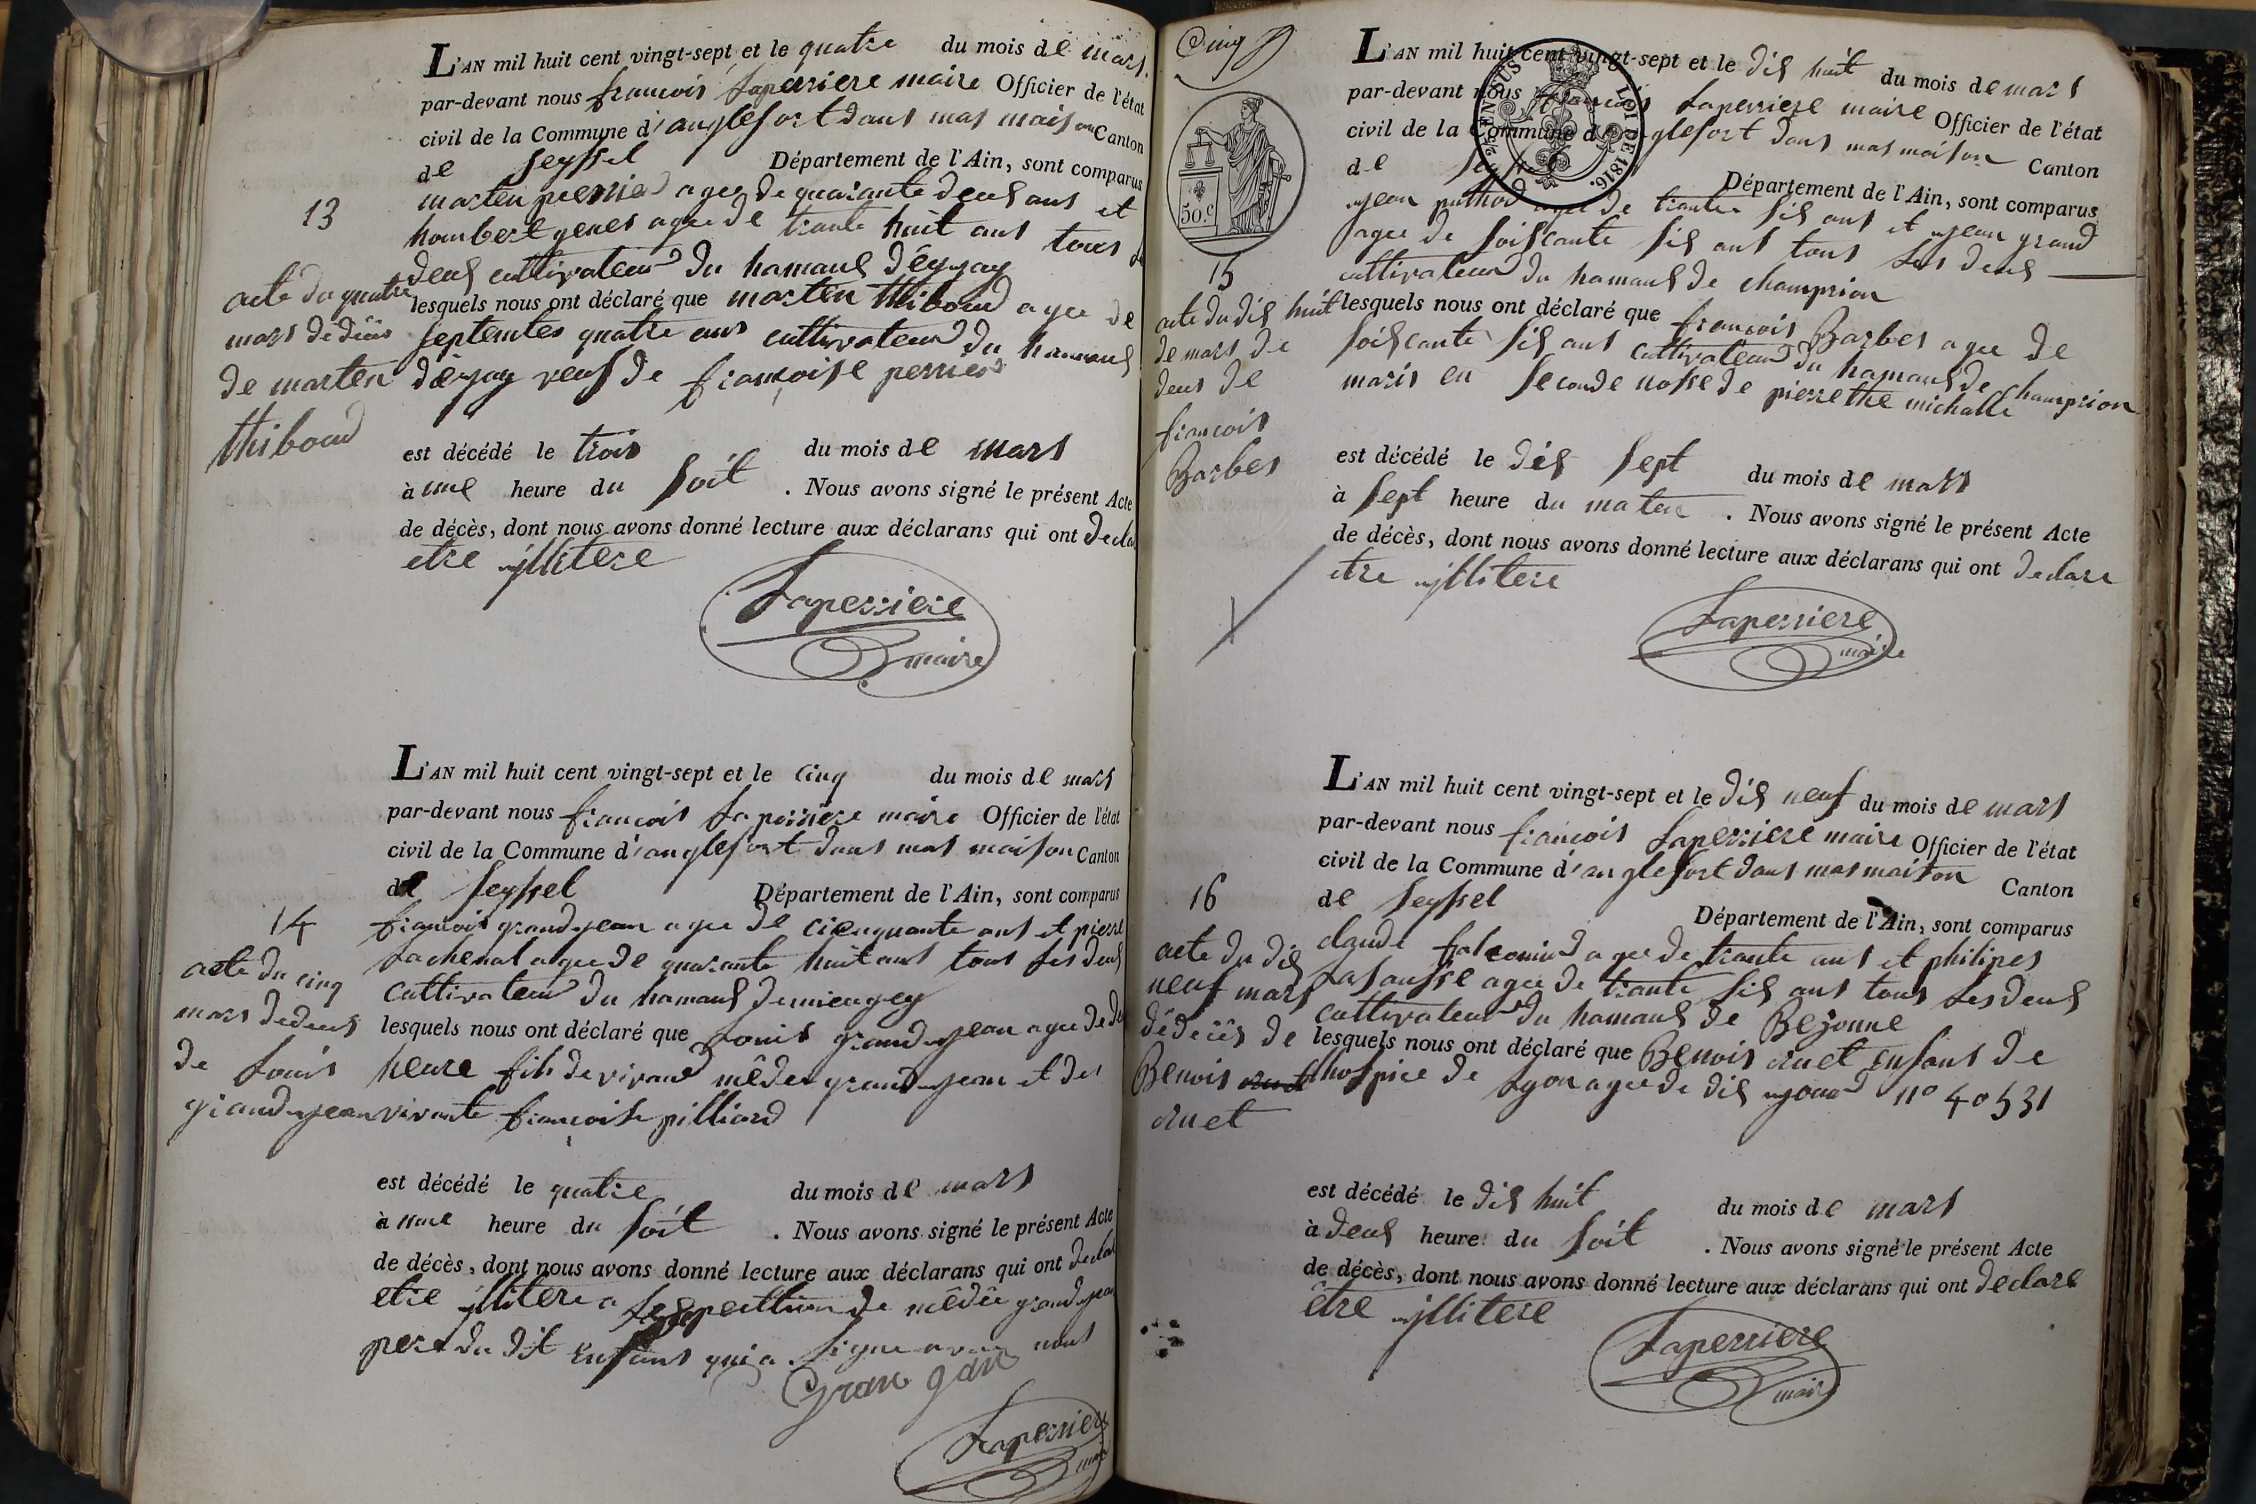 L'AN mil huit cent vingt-sept et le quatre du mois de mars
par-devant nous francois Laperriere maire Officier de l'état
civil de la Commune d'anglefort dans mas maison Canton
de Seyssel Département de l'Ain, sont comparus
13
marten perrier agee de quarante deus ans et
houmbert genes agee de trante huit ans tous
deus cultivateur du hamaus d'eyzay
lesquels nous ont déclaré que marten thiboud agee de
septentes quatre ans cultivateur du hamaus
d'eyzay veuf de francoise perrier
acte du quatre
mars dedeus
de marten
thiboud
est décédé le trois du mois de mars
à une heure du soit . Nous avons signé le présent Acte
de décès, dont nous avons donné lecture aux déclarans qui ont
etre illitere
Laperriere
maire
L'AN mil huit cent vingt-sept et le cinq du mois de mars
par-devant nous francois Laperriere maire Officier de l'état
civil de la Commune d'anglefort dans mas maison Canton
de Seyssel Département de l'Ain, sont comparus
14
francois grandjean agee de cienquante ans et pierre
Lachenal agee de quarante huit ans tous les deus
cultivateur du hamaus demieugey
lesquels nous ont déclaré que Louis grandjean agee de
heure fils de vivand mêdee grandjean et de
vivante francoise pilliard
acte du cinq
mars dedeus
de Louis
grandjean
est décédé le quatre du mois de mars
à une heure du soit . Nous avons signé le présent Acte
de décès, dont nous avons donné lecture aux déclarans qui ont
etre illitere a de mêdée grandjean
pere du dit enfans qui a signe avec nous
Gran gan
Laperriere
maire
Cinq
50.c
25 EN SUS LOI DE 1816.
L'AN mil huit cent vingt-sept et le dis huit du mois de mars
par-devant nous francois Laperriere maire Officier de l'état
civil de la Commune d'anglefort dans mas maison Canton
de Seyssel Département de l'Ain, sont comparus
15
jean puthod agee de trante sis ans et jean grand
agee de soiscante sis ans tous les deus
cultivateur du hamaus de champrion
lesquels nous ont déclaré que francois Barber agee de
soiscante sis ans cultivateur du hamaus de champrion
maris en seconde nosse de pierrethe michalle
acte du dis huit
de mars de
deus de
francois
Barber
est décédé le dis sept du mois de mars
à sept heure du maten . Nous avons signé le présent Acte
de décès, dont nous avons donné lecture aux déclarans qui ont declare
etre illitere
Laperriere
maire
L'AN mil huit cent vingt-sept et le dis neuf du mois de mars
par-devant nous francois Laperriere maire Officier de l'état
civil de la Commune d'anglefort dans mas maison Canton
de Seyssel Département de l'Ain, sont comparus
16
claude agee de trante ans et philipes
agee de trante sis ans tous les deus
cultivateur du hamaus de Bezonne
lesquels nous ont déclaré que Benois druet enfans de
lhospice de Lyon agee de dis jour no 40531
acte du dis
neuf mars
dédecês de
Benois
druet
est décédé le dis huit du mois de mars
à deus heure du soit . Nous avons signé le présent Acte
de décès, dont nous avons donné lecture aux déclarans qui ont declare
être illitere
Laperriere
maire